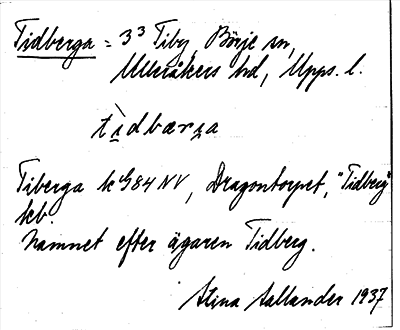 Tidberga = 3³ Tiby, Börje sn,
Ulleråkers hd, Upps. l.
tìdbærga
Tiberga k G84 NV, Dragontorpet, "Tidberg"
kb.
Namnet efter ägaren Tidberg.
Stina Sallander 1937